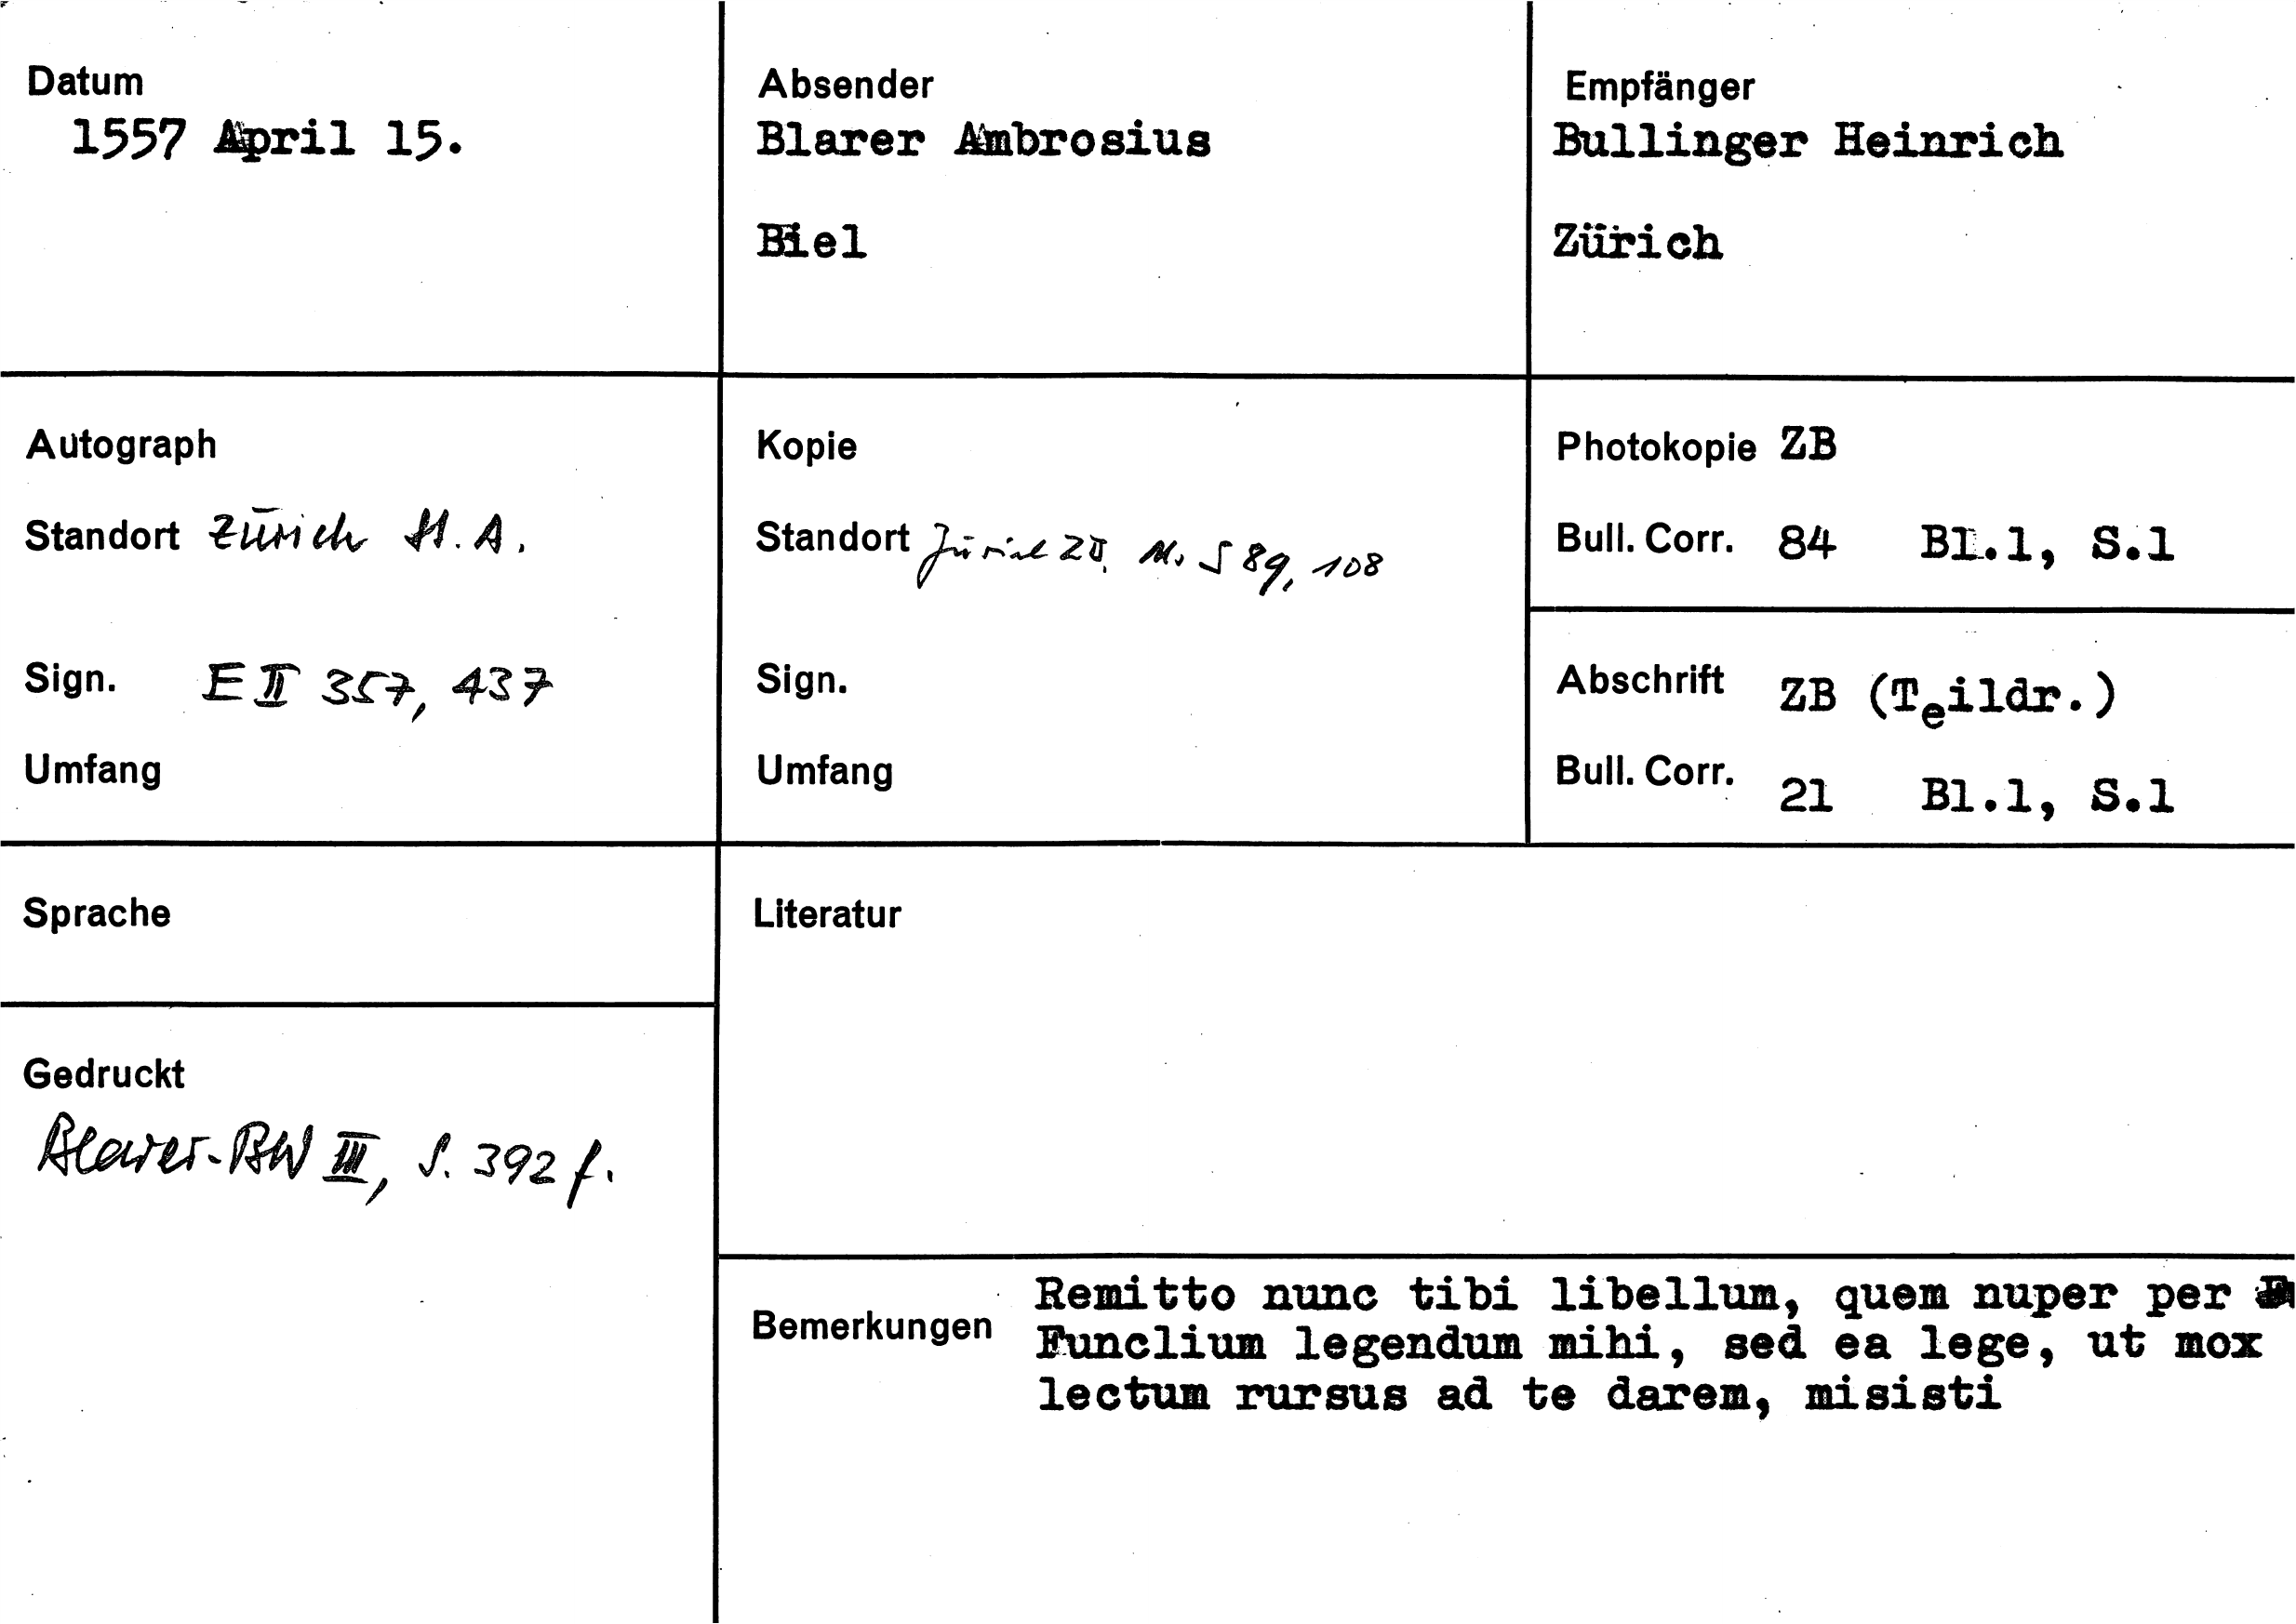 Datum
1557 April 15.
Absender
Blarer Ambrosius
Biel
Empfänger
Bullinger Heinrich
Zürich
Autograph
Standort Zürich St. A.
Sign. E II 357, 437
Umfang
Kopie
Standort Zürich ZB, Ms S 89, 108
Sign.
Umfang
Photokopie ZB
Bull. Corr. 84 Bl.1, S.1
Abschrift ZB (Teildr.)
Bull. Corr. 21 Bl.1, S.1
Sprache
Literatur
Gedruckt
Blarer-BW III, S. 392 f.
Bemerkungen
Remitto nunc tibi libellum, quem nuper per
Funclium legendum mihi, sed ea lege, ut mox
lectum rursus ad te darem, misisti